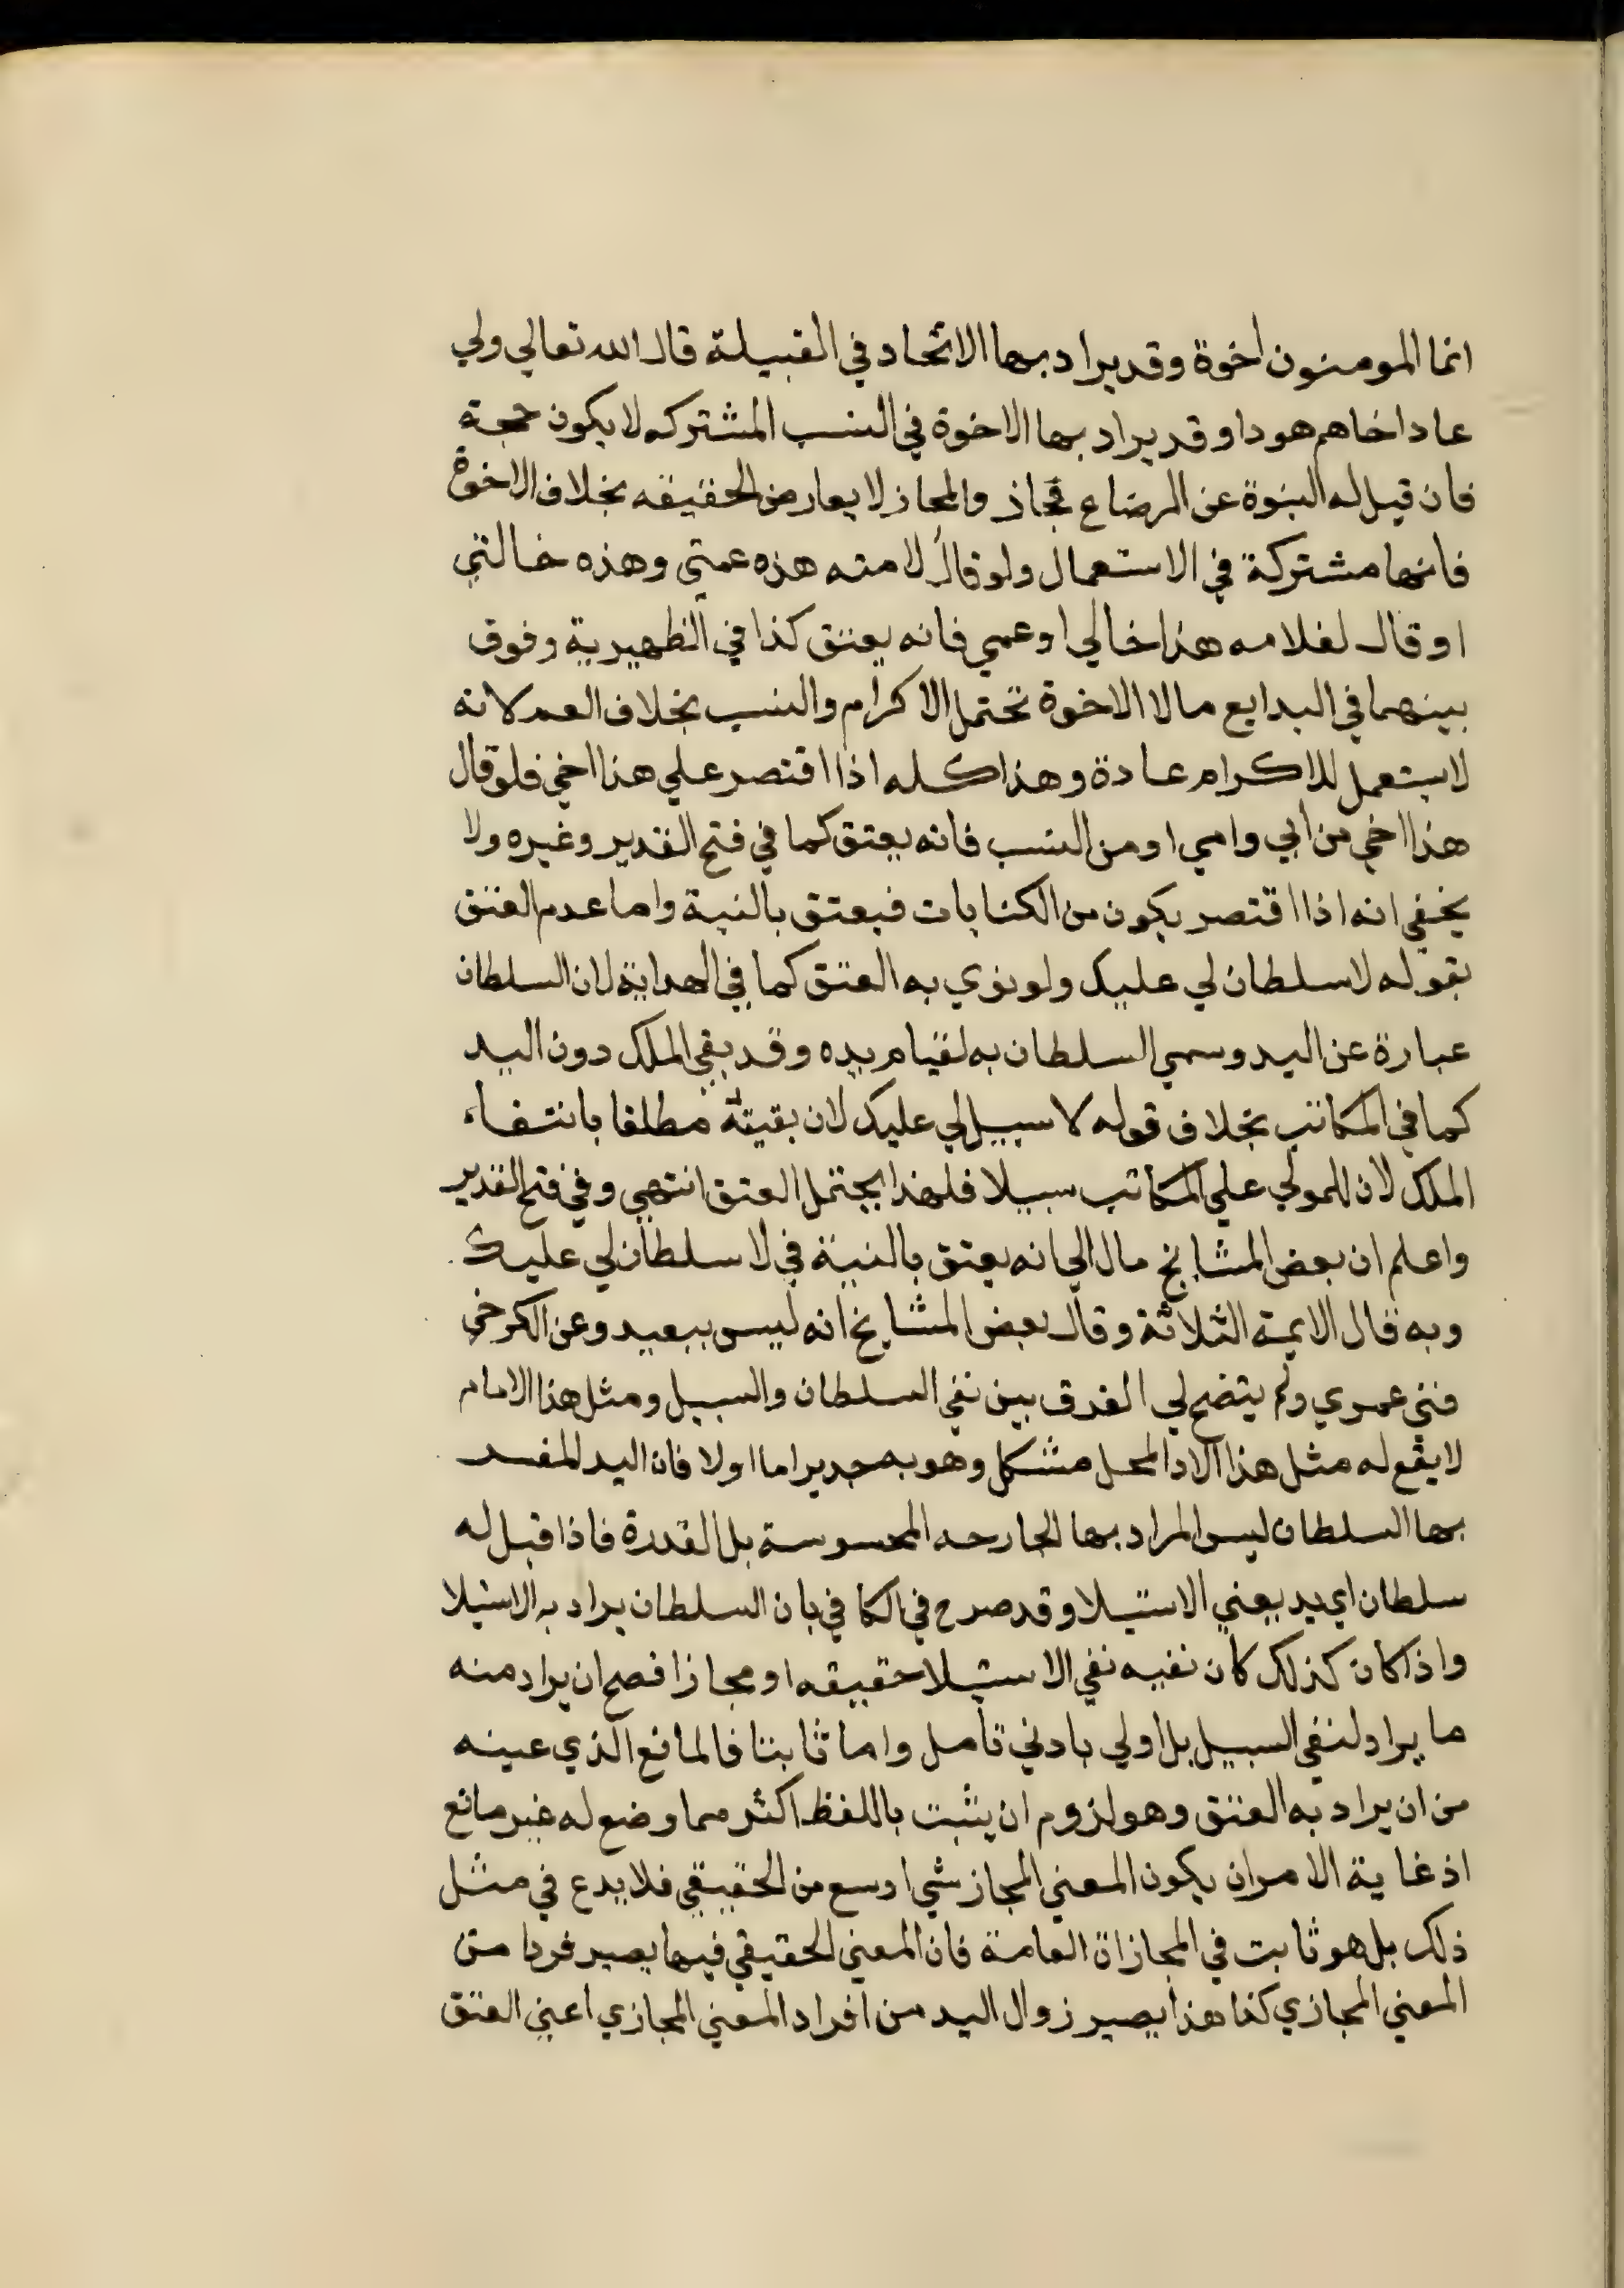 انما المومنون اخوة وقد يراد بها الاتحاد في القبيلة قال الله تعالي ولي
عاد اخاهم هودا وقد يراد بها الاخوة في النسب المشتركه لا يكون حجة
فان قيل له البنوة عن الرضاع مجاذ والمجاز لا يعار من الحقيقه بخلاف الاخوة
فانها مشتركة في الاستعمال ولو قال لامته هذه عمتي وهذه خالتي
او قال لغلامه هذا خالي او عمي فانه يعتق كذا في الظهيرية وفوق
بينهما في البدايع مالا الاخوة تحتمل الاكرام والنسب بخلاف العم لانه
لا يستعمل للاكرام عادة وهذا كله اذا اقتصر علي هذا اخي فلو قال
هذا اخي من ابي وامي او من النسب فانه يعتق كما في فتح القدير وغيره ولا
يخفي انه اذا اقتصر يكون من الكنايات فيعتق بالنية واما عدم العتق
بقوله لا سلطان لي عليك ولو نوي به العتق كما في الهداية لان السلطان
عبارة عن اليد وسمي السلطان به لقيام يده وقد يبقي الملك دون اليد
كما في المكاتب بخلاف قوله لا سبيل لي عليك لان بقيته مطلقا بانتفاء
الملك لان للمولي علي المكاتب سبيلا فلهذا يحتمل العتق انتهي وفي فتح القدير
واعلم ان بعض المشايخ مال الي انه يعتق بالنية في لا سلطان لي عليك
وبه قال الايمة الثلاثة وقال بعض المشايخ انه ليس ببعيد وعن الكرخي
فني عمري ولم يتضح لي الفرق بين نفي السلطان والسبيل ومثل هذا الامام
لا يقع له مثل هذا الا دا المحل مشكل وهو به جدير اما اولا فان اليد المفسد
بها السلطان ليس المراد بها الجارحه المحسوسة بل القدرة فاذا قيل له
سلطان اي يد يعني الاستيلا وقد صرح في الكافي بان السلطان يراد به الاستيلا
واذا كان كذلك كان نفيه نفي الاستيلا حقيقه او مجازا فصح ان يراد منه
ما يراد لنفي السبيل بل اولي بادني تامل واما ثابتا فالمانع الذي عينه
من ان يراد به العتق وهو لزوم ان يثبت باللفظ اكثر مما وضع له غير مانع
اذ غاية الامر ان يكون المعني المجاز شي اوسع من الحقيقي فلا يدع في مثل
ذلك بل هو ثابت في المجازاة العامة فان المعني الحقيقي فيها يصير فردا من
المعني المجازي كذا هذا يصير زوال اليد من افراد المعني المجازي اعني العتق